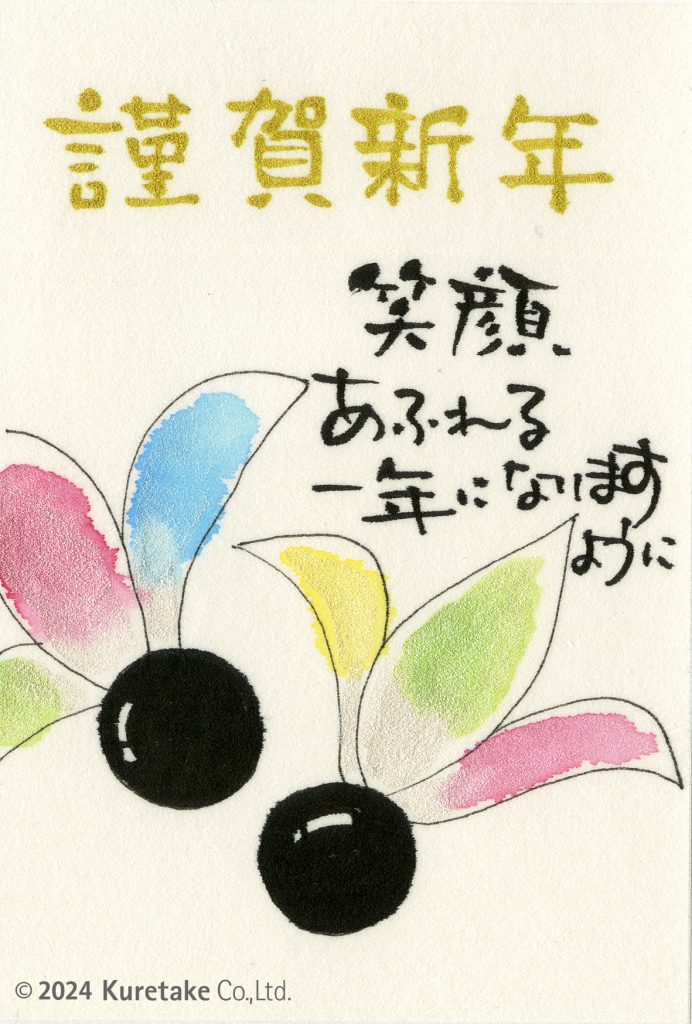 謹賀新年
笑顔
あふれる
一年になります
ように
© 2024 Kuretake Co.,Ltd.